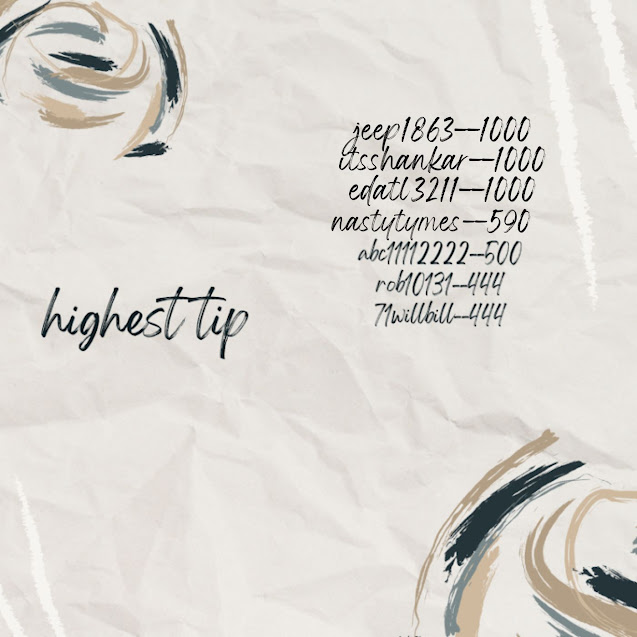 jeep1863--1000
itsshankar--1000
edatl3211--1000
nastytymes--590
abc11112222--500
rob10131--444
71willbill--444
highest tip